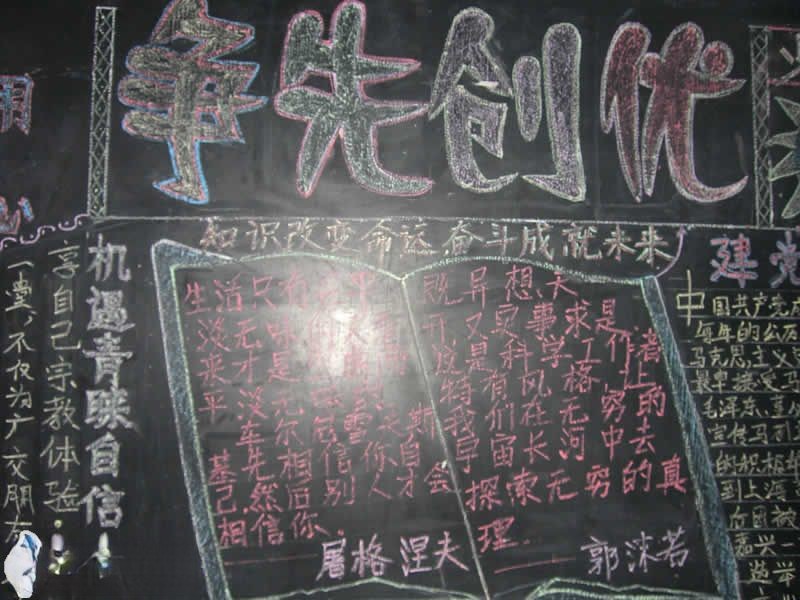 争先创优
用
知识改变命运 奋斗成就未来
机遇青睐自信
享自己宗教体验.
不仅为广交朋友
生活只有在平
淡无味的人看
来才是空
平淡
车尔尼雪夫斯
基.
先相信你自
己,然后别人才会
相信你.
屠格涅夫
既异想天
开又实事求是
这是科学工作者
特有的风格
我们在无穷的
宇宙长河中去
探索无穷的真
理.
郭沫若
建党
中国共产党成
每年的
马克思主义
毛泽东、
宣传马
的积极
到上海
嘉兴